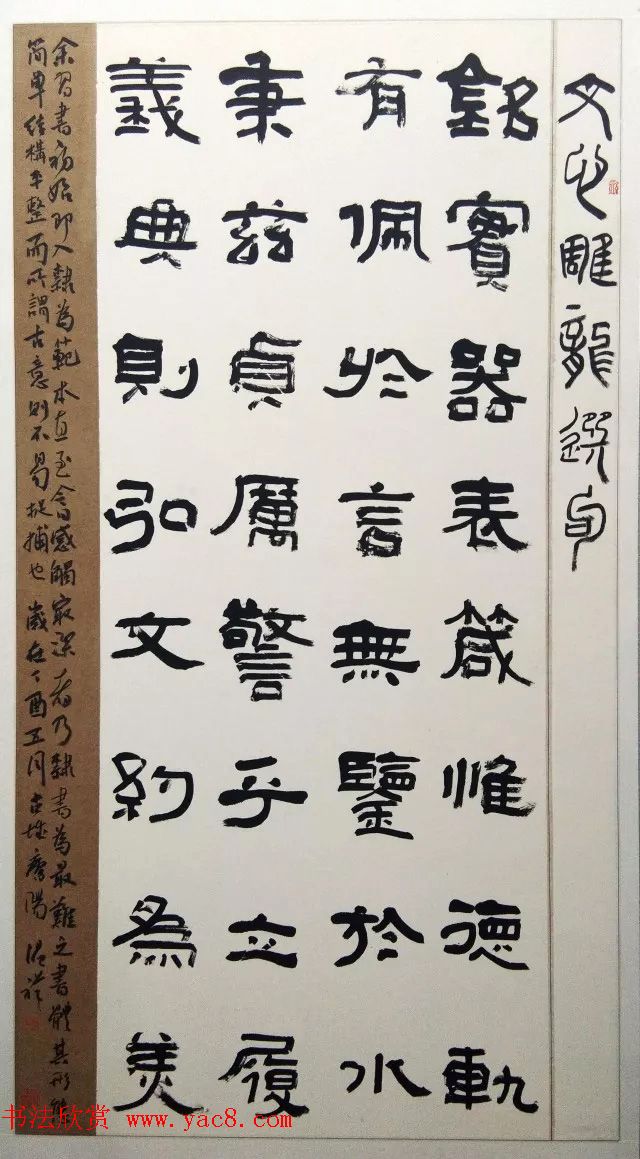 文心雕龍選句
銘實器表箴惟德軌
有佩於言無鑒於水
秉茲貞厲警乎立履
義典則弘文約為美
余習書初始即入隸為範本直至今感觸最深者乃隸書為最難之書體其形雖
简單结構平整而所謂古意則不易捉捕也 歲在丁酉五月古城襄陽
书法欣赏 www.yac8.com